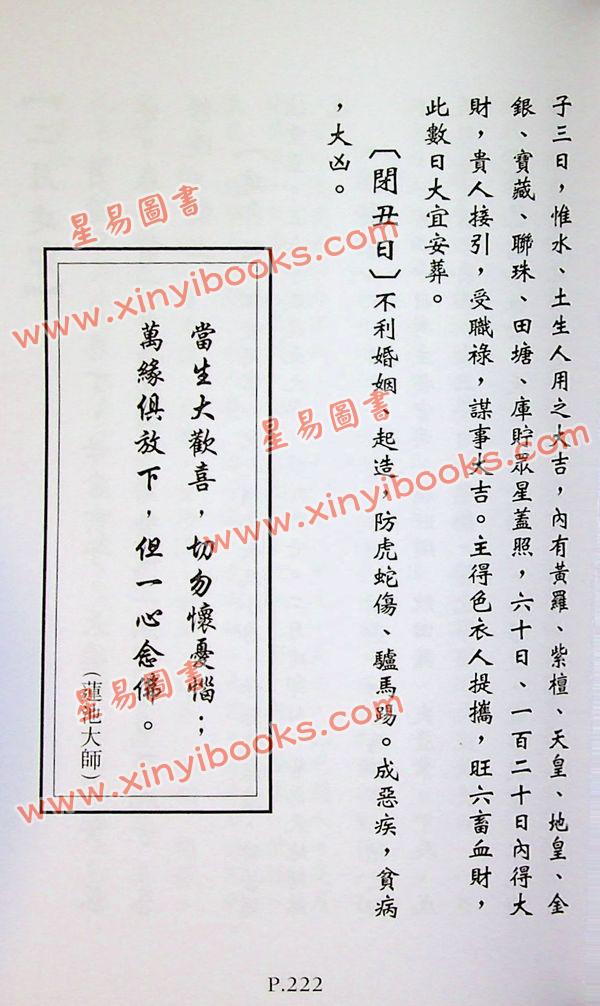 子三日，惟水、土生人用之大吉，內有黃羅、紫檀、天皇、地皇、金
銀、寶藏、聯珠、田塘、庫貯眾星蓋照，六十日、一百二十日內得大
財，貴人接引，受職祿，謀事大吉。主得色衣人提攜，旺六畜血財，
此數日大宜安葬。
〔閉丑日〕不利婚姻、起造，防虎蛇傷、驢馬踢。成惡疾，貧病
，大凶。
當生大歡喜，切勿懷憂惱；
萬緣俱放下，但一心念佛。
（蓮池大師）
P.222
星易圖書
www.xinyibooks.com
星易圖書
www.xinyibooks.com
星易圖書
www.xinyibooks.com